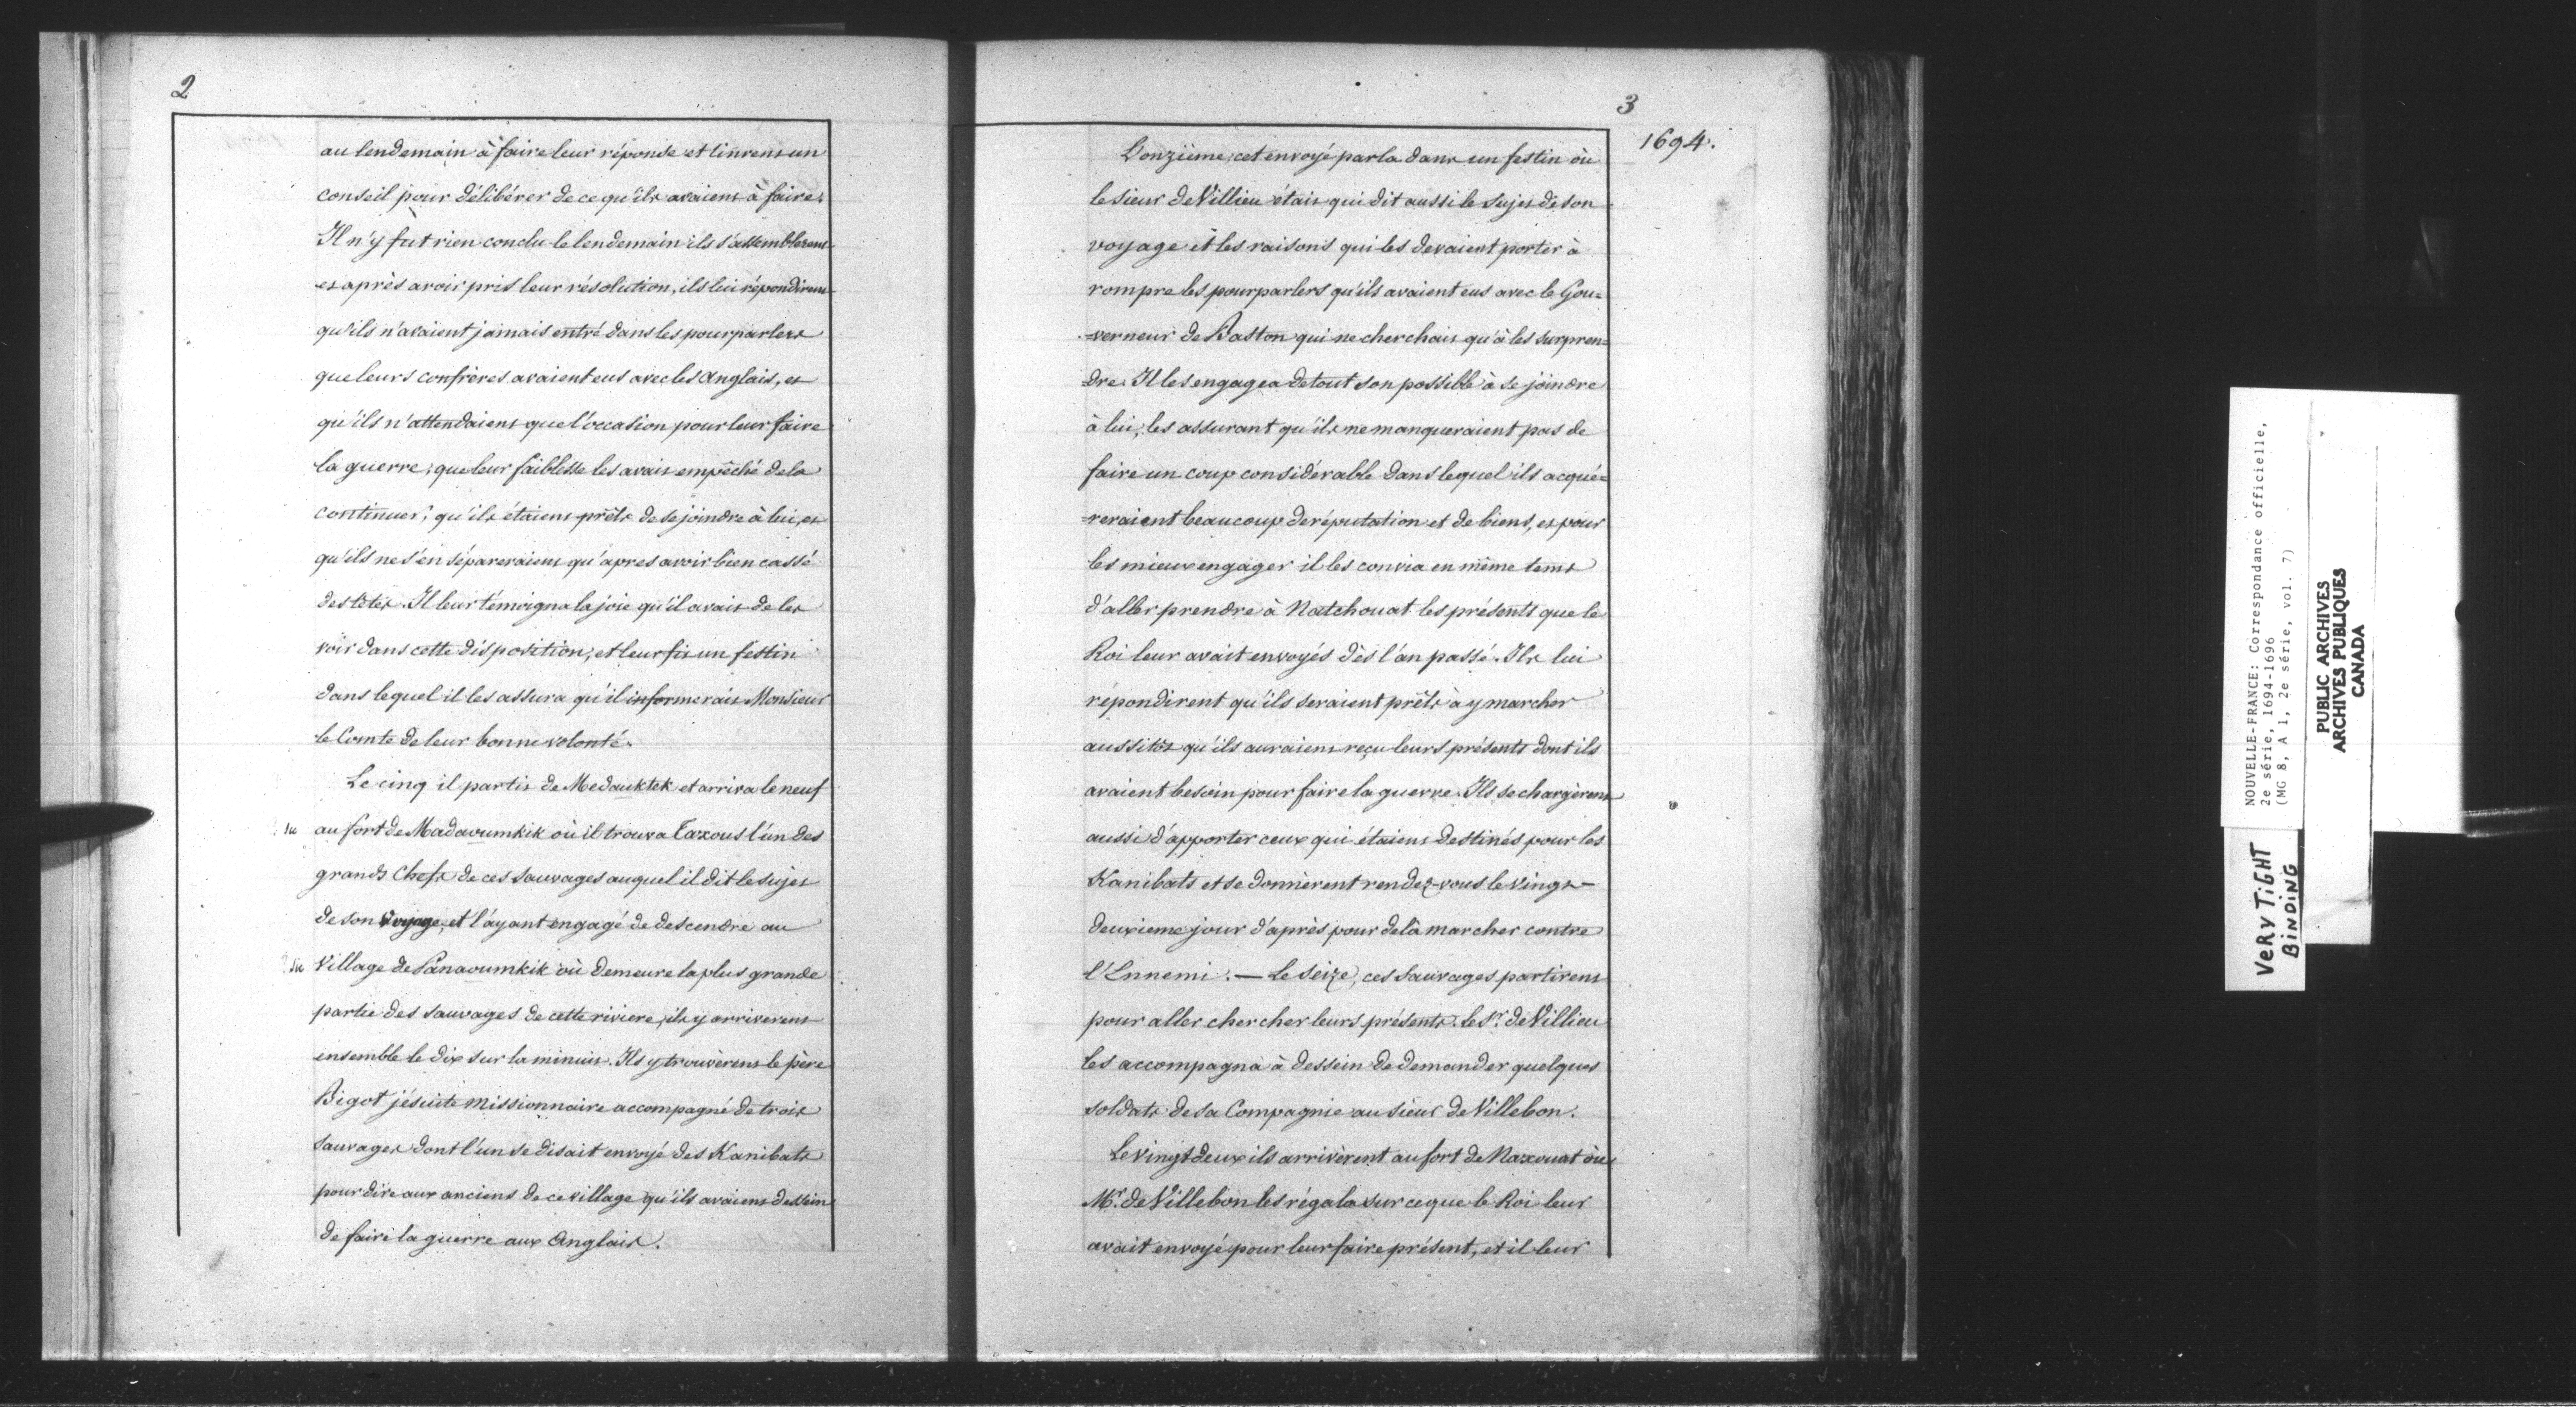 2
au lendemain à faire leur réponse et tinrent un
conseil pour délibérer de ce qu'ils avaient à faire.
Il n'y fut rien conclu le lendemain ils s'assemblerent
et après avoir pris leur résolution, ils lui répondirent
qu'ils n'avaient jamais entré dans les pourparlers
que leurs confrères avaient eus avec les Anglais, et
qu'ils n'attendaient que l'occasion pour leur faire
la guerre; que leur faiblesse les avait empêché de la
continuer; qu'ils étaient prêts de se joindre à lui, et
qu'ils ne s'en sépareraient qu'apres avoir bien cassé
des têtes. Il leur témoigna la joie qu'il avait de les
voir dans cette disposition, et leur fit un festin
dans lequel il les assura qu'il informerait Monsieur
le Comte de leur bonne volonté.
Le cinq il partit de Medauktek et arriva le neuf
au fort de Madaoumkik où il trouva Taxous l'un des
grands Chefs de ces sauvages auquel il dit le sujet
de son voyage, et l'ayant engagé de descendre au
Village de Panaoumkik où demeure la plus grande
partie des sauvages de cette riviere, ils y arriverent
ensemble le dix sur la minuit. Ils y trouvèrent le père
Bigot jésuite missionnaire accompagné de trois
sauvages dont l'un se disait envoyé des Kanibats
pour dire aux anciens de ce village qu'ils avaient dessein
de faire la guerre aux Anglais.
3
1694.
L'onzième, cet envoyé parla dans un festin où
le sieur de Villieu était qui dit aussi le sujet de son
voyage et les raisons qui les devaient porter à
rompre les pourparlers qu'ils avaient eus avec le Gou=
=verneur de Baston qui ne cherchait qu'à les surpren=
=dre. Il les engagea de tout son possible à se joindre
à lui, les assurant qu'ils ne manqueraient pas de
faire un coup considérable dans lequel ils acqué=
=reraient beaucoup de réputation et de biens, et pour
les mieux engager il les convia en même tems
d'aller prendre à Natchouat les présents que le
Roi leur avait envoyés dès l'an passé. Ils lui
répondirent qu'ils seraient prêts à y marcher
aussitôt qu'ils auraient reçu leurs présents dont ils
avaient besoin pour faire la guerre. Ils se chargèrent
aussi d'apporter ceux qui étaient destinés pour les
Kanibats et se donnèrent rendez-vous le vingt-
deuxieme jour d'après pour delà marcher contre
l'Ennemi. — Le seize, ces sauvages partirent
pour aller chercher leurs présents. le Sr. de Villieu
les accompagna à dessein de demander quelques
soldats de sa Compagnie au sieur de Villebon.
Le vingt deux ils arrivèrent au fort de Naxouat où
Mr. de Villebon les régala sur ce que le Roi leur
avait envoyé pour leur faire présent, et il leur
NOUVELLE-FRANCE: Correspondance officielle,
2e série, 1694-1696
(MG 8, A 1, 2e série, vol. 7)
PUBLIC ARCHIVES
ARCHIVES PUBLIQUES
CANADA
VERY TIGHT
BINDING